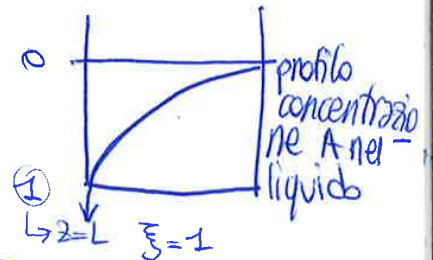 0
profilo
concentrazio
ne A nel-
liquido
1
↳ z=L
ξ=1